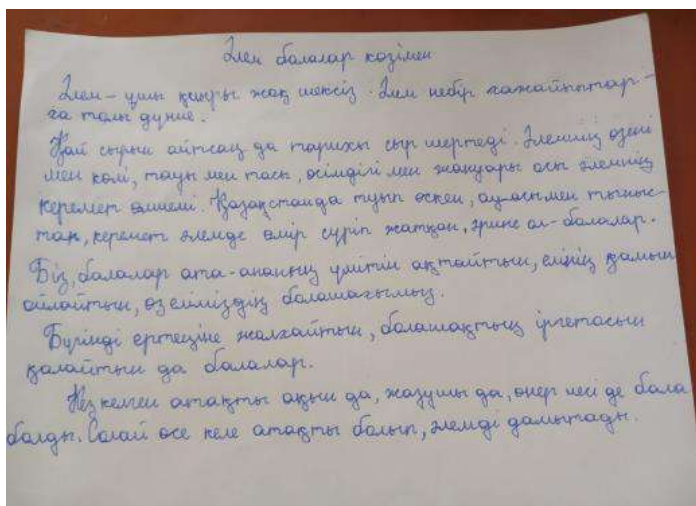 Әлем балалар көзімен
Әлем – ұшы қиыры жоқ шексіз. Әлем небір ғажайыптар-
ға толы дүние.
Қай сырын айтсаң да тарихы сыр шертеді. Әлемнің өзені
мен көлі, тауы мен тасы, өсімдігі мен жануары осы әлемнің
керемет Қазақстанда туып өскен, ауасымен тыныс-
тап, керемет әлемде өмір сүріп жатқан, әрине ол - балалар.
Біз, балалар ата-ананың үмітін ақтайтын, елінің қамын
ойлайтын, өз еліміздің болашағымыз.
Бүгінді ертеңіне жалғайтын, болашақтың іргетасын
қалайтын да балалар.
Кез келген атақты ақын да, жазушы да, өнер иесі де бала
болды. Солай өсе келе атақты болып, әлемді дамытады.